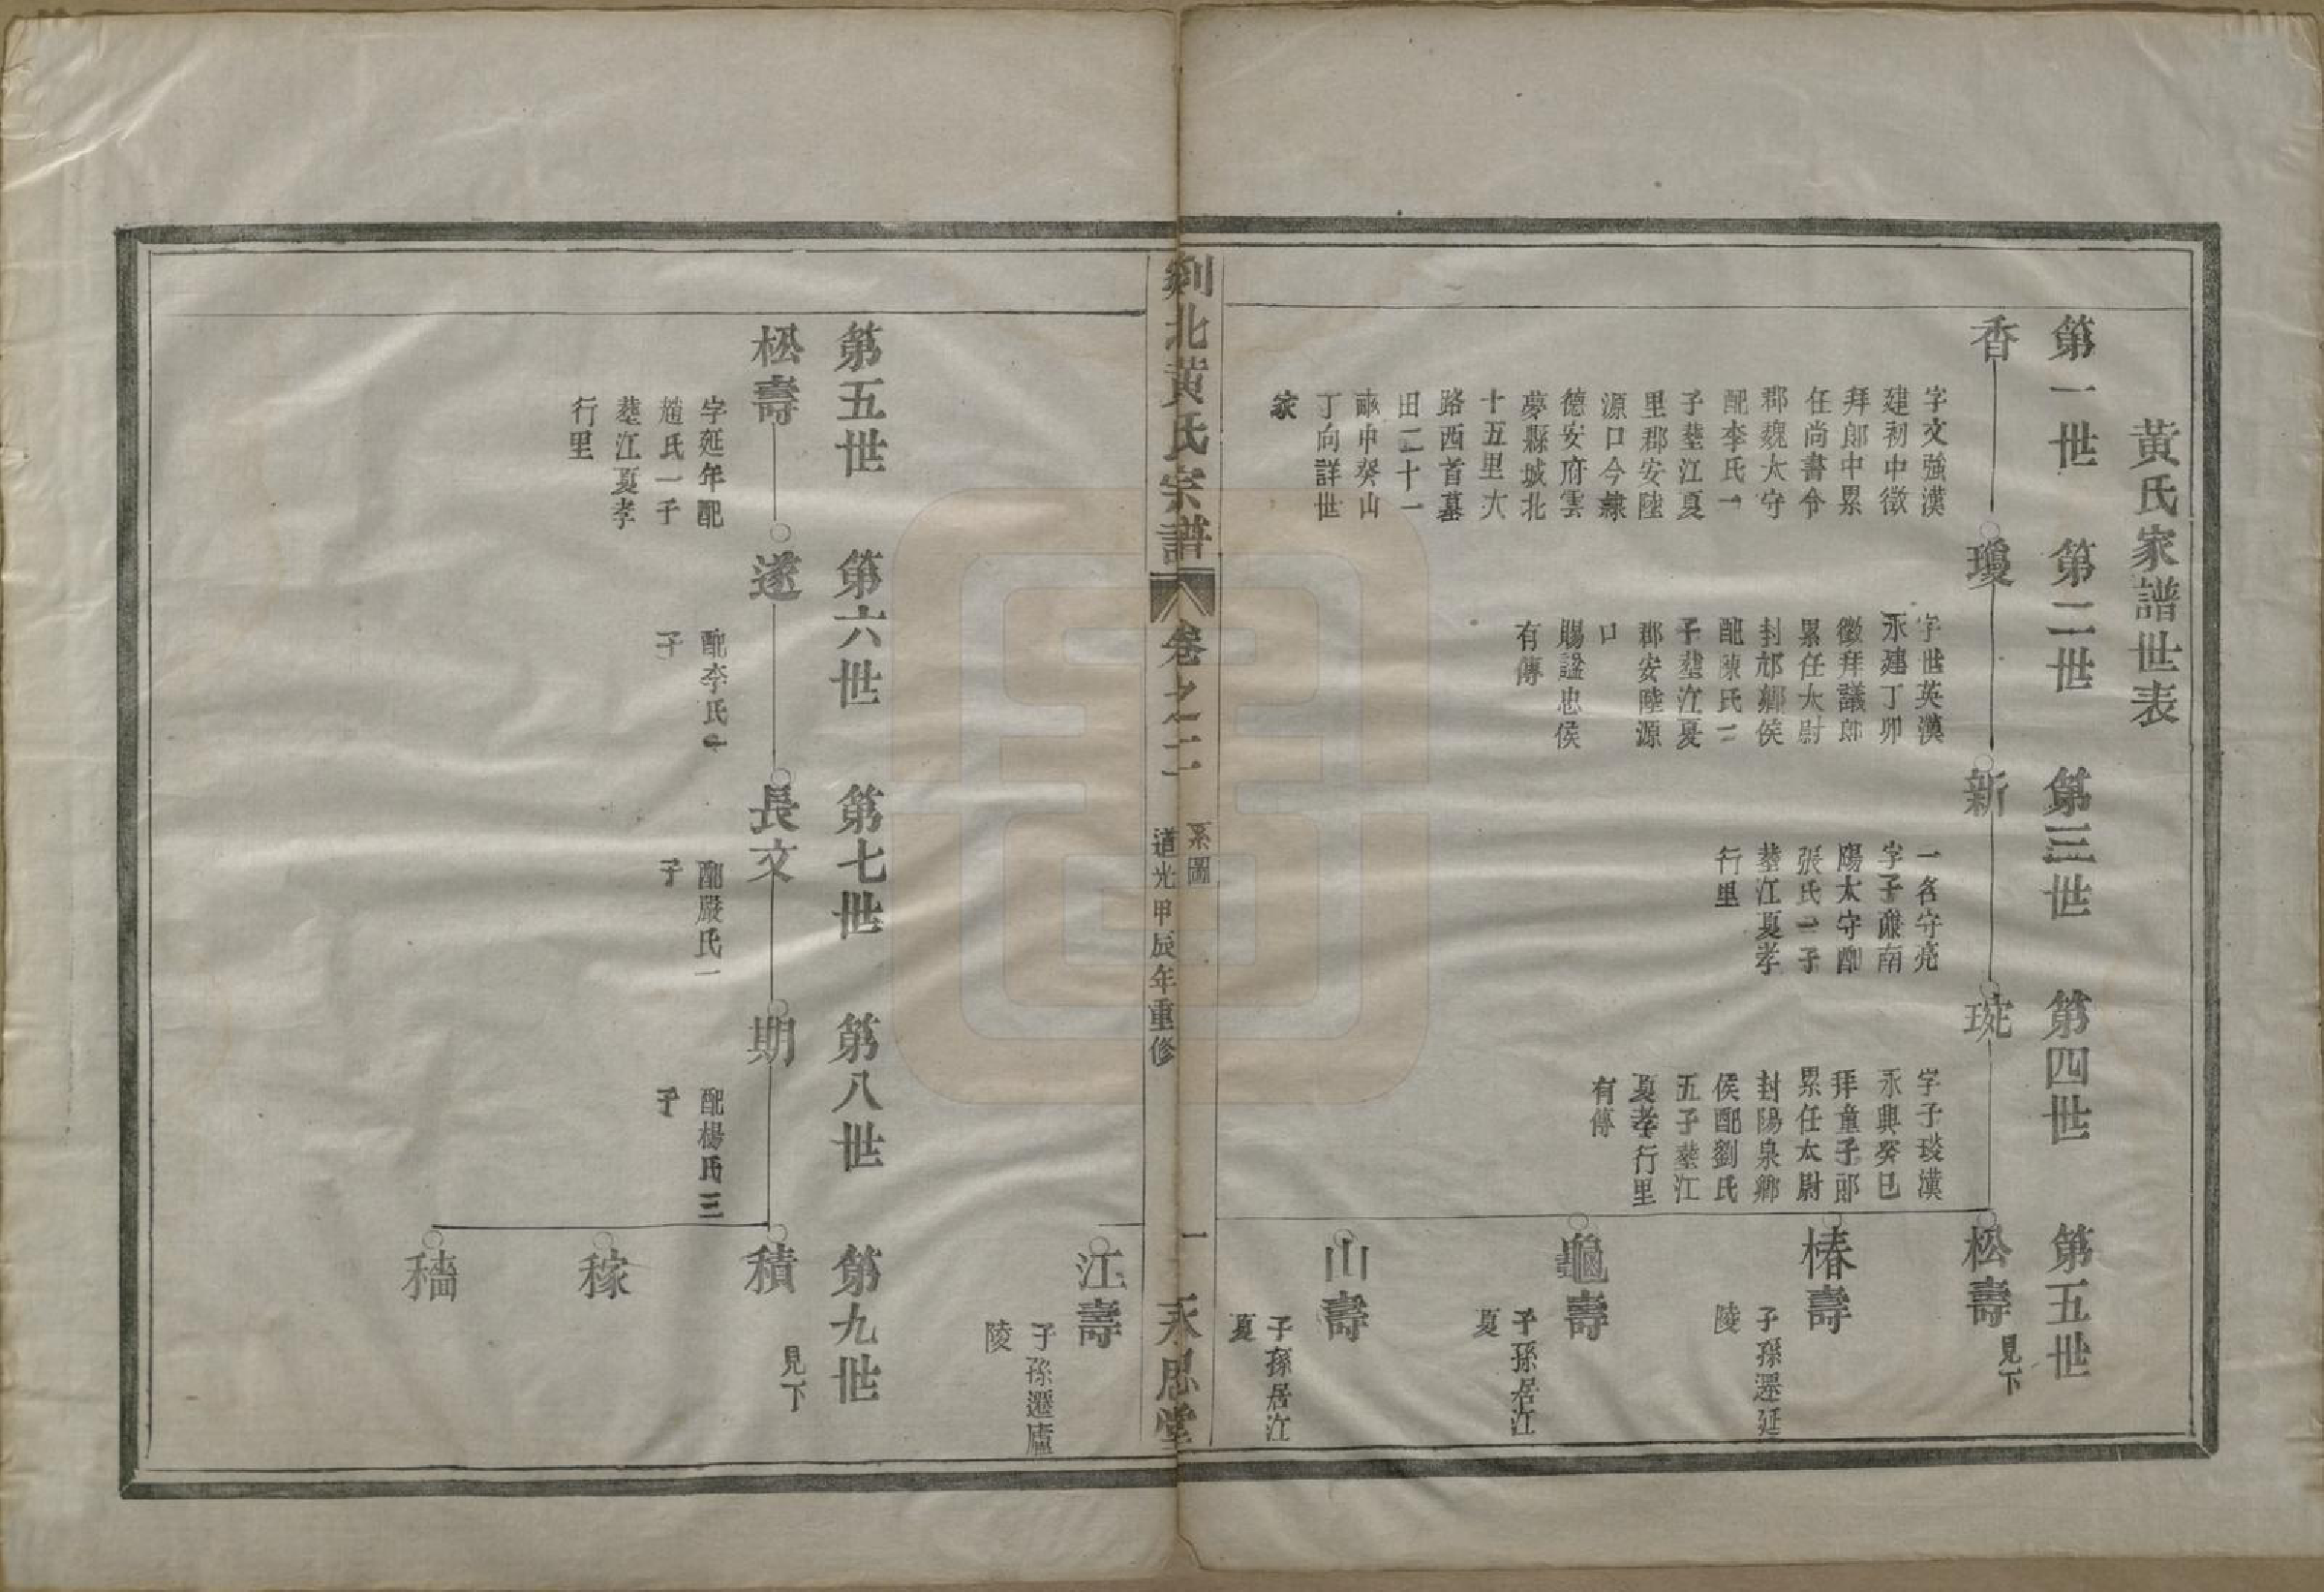 黃氏家譜世表
第一世
第二世
第三世
第四世
第五世
香
字文強漢
建初中徵
拜郎中累
任尚書令
郡魏太守
配李氏一
子塟江夏
里郡安陸
源口今隸
德安府雲
夢縣城北
十五里大
路西首墓
田二十一
畝申癸山
丁向詳世
家
瓊
字世英漢
永建丁卯
徵拜議郎
累任太尉
封邟鄉侯
配陳氏二
子塟江夏
郡安陸源
口
賜諡忠侯
有傳
新
一名守亮
字子亷南
陽太守配
張氏一子
塟江夏孝
行里
琬
字子琰漢
永興癸巳
拜童子郎
累任太尉
封陽泉鄉
侯配劉氏
五子塟江
夏孝行里
有傳
松壽
見下
椿壽
子孫遷延
陵
龜壽
子孫居江
夏
山壽
子孫居江
夏
剡北黃氏宗譜
卷之二
系圖
道光甲辰年重修
一
永思堂
江壽
子孫遷廬
陵
第五世
第六世
第七世
第八世
第九世
松壽
字延年配
趙氏一子
塟江夏孝
行里
遂
配李氏一
子
長文
配嚴氏一
子
期
配楊氏三
子
積
見下
稼
穡